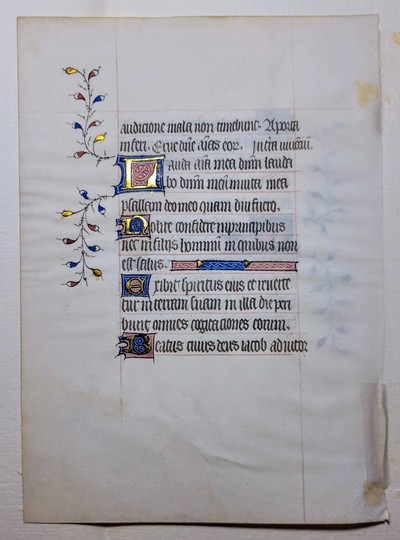 audicione mala non timebunt. A porta
inferi. Erue dñe aīas eor.
Lauda aīa mea dñm lauda
bo dñm meū in uita mea
psallam deo meo quam diu fuero.
Nolite confidere in principibus
nec in filijs hominū in quibus non
est salus.
Exibit spiritus eius et reuerte
tur in terram suam in illa die peri
bunt omnes cogitaciones eorum.
Beatus cuius deus iacob adiutor